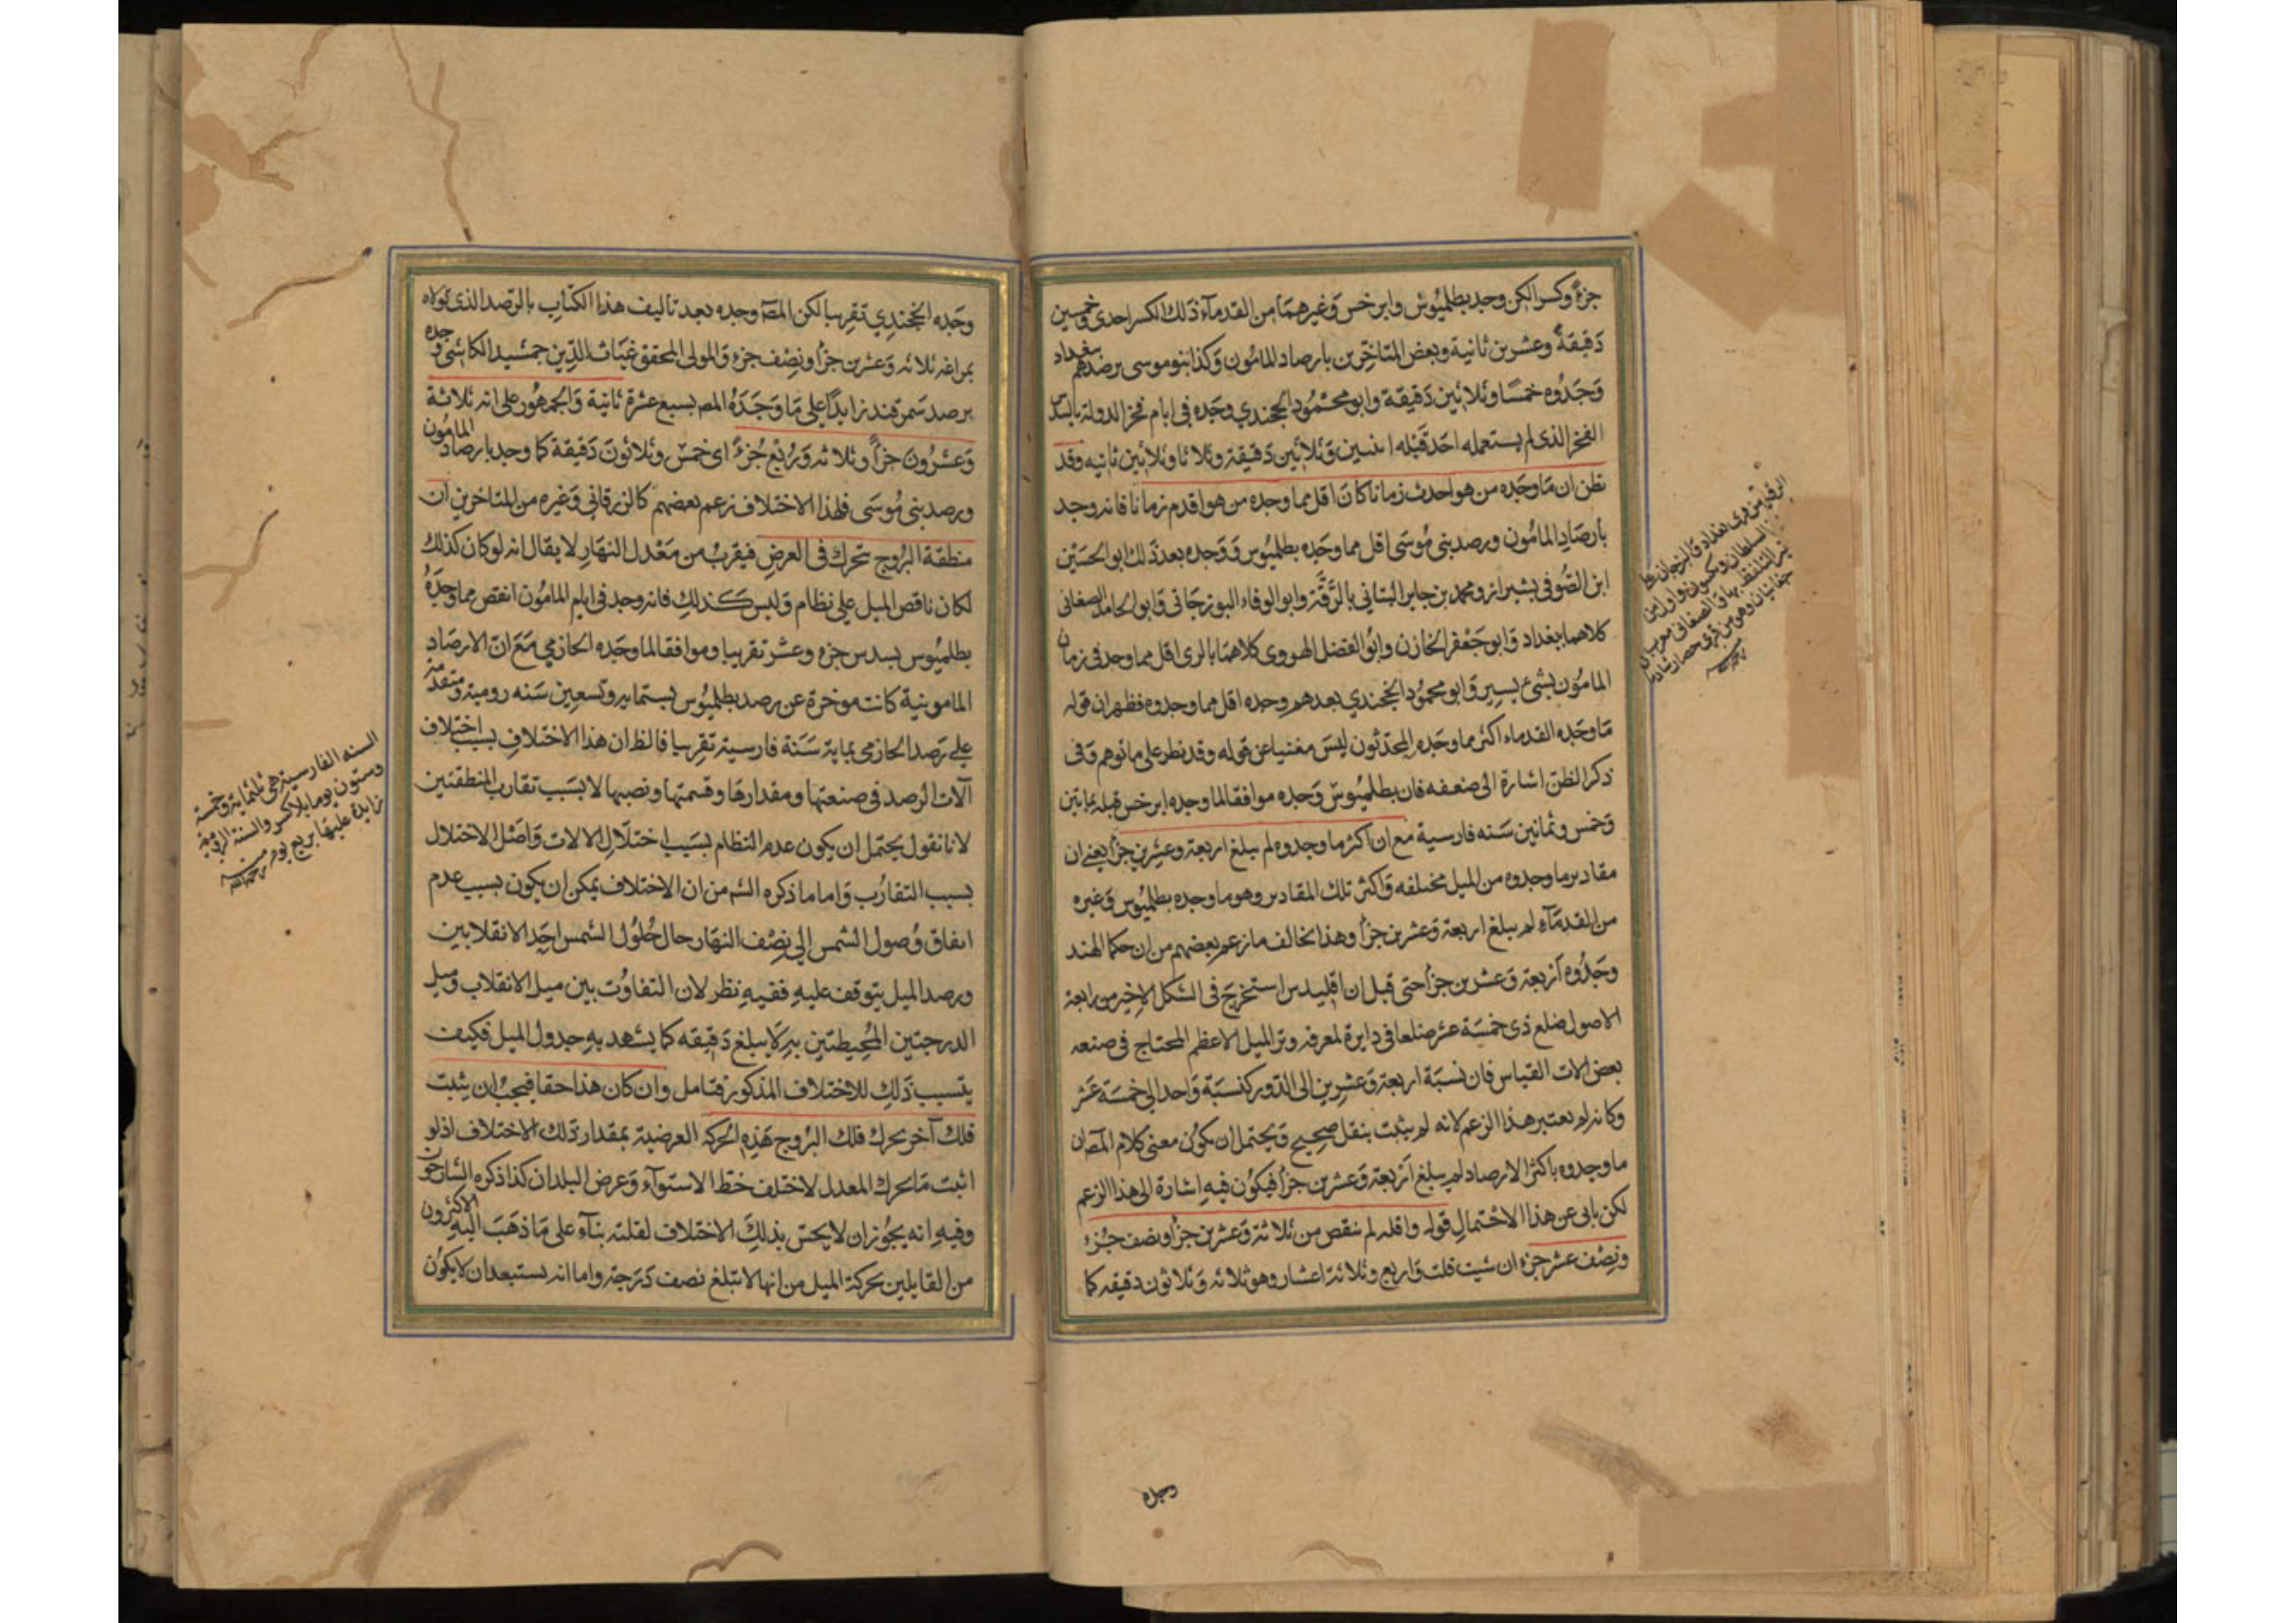 جزءً وكسر الكن وجد بطلميوس وابرخس وغيرهما من القدمآء ذلك الكسر احدى وخمسين
دقيقة وعشرين ثانية وبعض المتاخرين بارصاد المامون وكذا بنو موسى برصدهم ببغداد
وجدوه خمسا وثلاثين دقيقة وابو محمود الخجندي وجده في ايام فخر الدولة بالسدس
الفخر الذى لم يستعمله احد قبله اثنين وثلاثين دقيقة وثلاثا وثلاثين ثانيه وقد
نظن ان ما وجده من هو احدث زمانا كان اقل مما وجده من هو اقدم زمانا فانه وجد
بارصاد المامون ورصد بنى موسى اقل مما وجده بطلميوس ووجده بعد ذلك ابو الحسين
ابن الصوفى بشيراز ومحمد بن جابر البتاني بالرقة وابو الوفاء البوزجانى وابو الحامد الصغانى
كلاهما ببغداد وابو جعفر الخازن وابو الفضل الهروى كلاهما بالرى اقل مما وجد فى زمان
المامون بشئ يسير وابو محمود الخجندي بعدهم وجده اقل مما وجدوه فظهر ان قوله
ما وجده القدماء اكثر مما وجده المحدثون ليس مغنيا عن قوله وقد نظر على ما توهم وفى
ذكر الظن اشارة الى ضعفه فان بطلميوس وجده موافقا لما وجده ابرخس قبله بمايتين
وخمس وثمانين سنه فارسية مع ان اكثر ما وجدوه لم يبلغ اربعة وعشرين جزأ يعنى ان
مقادير ما وجدوه من الميل مختلفه واكثر تلك المقادير وهو ما وجده بطلميوس وغيره
من القدمآء لم يبلغ اربعة وعشرين جزأ وهذا يخالف ما زعم بعضهم من ان حكما الهند
وجدوه اربعة وعشرين جزأ حتى قيل ان اقليدس استخرج فى الشكل الاخير من رابعة
الاصول ضلع ذى خمسة عشر ضلعا فى دايرة لمعرفة وتر الميل الاعظم المحتاج فى صنعه
بعض الات القياس فان نسبة اربعة وعشرين الى الدور كنسبة واحد الى خمسة عشر
وكانه لم يعتبر هذا الزعم لانه لم يثبت بنقل صحيح ويحتمل ان يكون معنى كلام المص ان
ما وجدوه باكثر الارصاد لم يبلغ اربعة وعشرين جزأ فيكون فيه اشارة الى هذا الزعم
لكن يابى عن هذا الاحتمال قوله واقله لم ينقص من ثلاثة وعشرين جزأ ونصف جزء
ونصف عشر جزء ان شيت قلت واربع وثلاثة اعشار وهو ثلاثه وثلاثون دقيقه كما
وجده
وجده الخجندي تقريبا لكن المص وجده بعد تاليف هذا الكتاب بالرصد الذى تولاه
بمراغه ثلاثه وعشرين جزأ ونصف جزء والمولى المحقق غياث الدين جمشيد الكاشى وجده
برصد سمرقند زايدا على ما وجده المص بسبع عشرة ثانية والجمهور على انه ثلاثة
وعشرون جزأ وثلاثه وربع جزء اى خمس وثلاثون دقيقة كما وجد بارصاد المامون
ورصد بنى موسى فلهذا الاختلاف زعم بعضهم كالزرقاني وغيره من المتاخرين ان
منطقة البروج تحرك فى العرض فيقرب من معدل النهار لا يقال انه لو كان كذلك
لكان تناقص الميل على نظام وليس كذلك فانه وجد فى ايام المامون انقص مما وجده
بطلميوس بسدس جزء وعشر تقريبا وموافقا لما وجده الحازمي مع ان الارصاد
المامونية كانت موخرة عن رصد بطلميوس بستمايه وتسعين سنه رومية ومتقدمة
على رصد الحازمى بماية سنة فارسية تقريبا فالظان هذا الاختلاف بسبب اختلاف
آلات الرصد فى صنعتها ومقدارها وقسمتها ونصبها لا بسبب تقارب المنطقتين
لانا نقول يحتمل ان يكون عدم النظام بسبب اختلال الالات واصل الاختلال
بسبب التقارب واما ما ذكره الشه من ان الاختلاف يمكن ان يكون بسبب عدم
اتفاق وصول الشمس الى نصف النهار حال حلول الشمس احد الانقلابين
ورصد الميل يتوقف عليه ففيه نظر لان التفاوت بين ميل الانقلاب وميل
الدرجتين المحيطتين به لا يبلغ دقيقه كما يشهد به جدول الميل فكيف
يتسبب ذلك للاختلاف المذكور فتامل وان كان هذا حقا فيجب ان يثبت
فلك آخر يحرك فلك البروج هذه الحركه العرضية بمقدار ذلك الاختلاف اذ لو
اثبت ما يحرك المعدل لاختلف خط الاستوآء وعرض البلدان كذا ذكره الشارحون
وفيه انه يجوز ان لا يحس بذلك الاختلاف لقلته بنآء على ما ذهب اليه الاكثرون
من القايلين بحركة الميل من انها لا تبلغ نصف درجة واما انه يستبعد ان لا يكون
السنه الفارسية هى ثلثماية وخمسة
وستون يوما بلا كسر والسنة الرومية
زايدة عليها بربع يوم